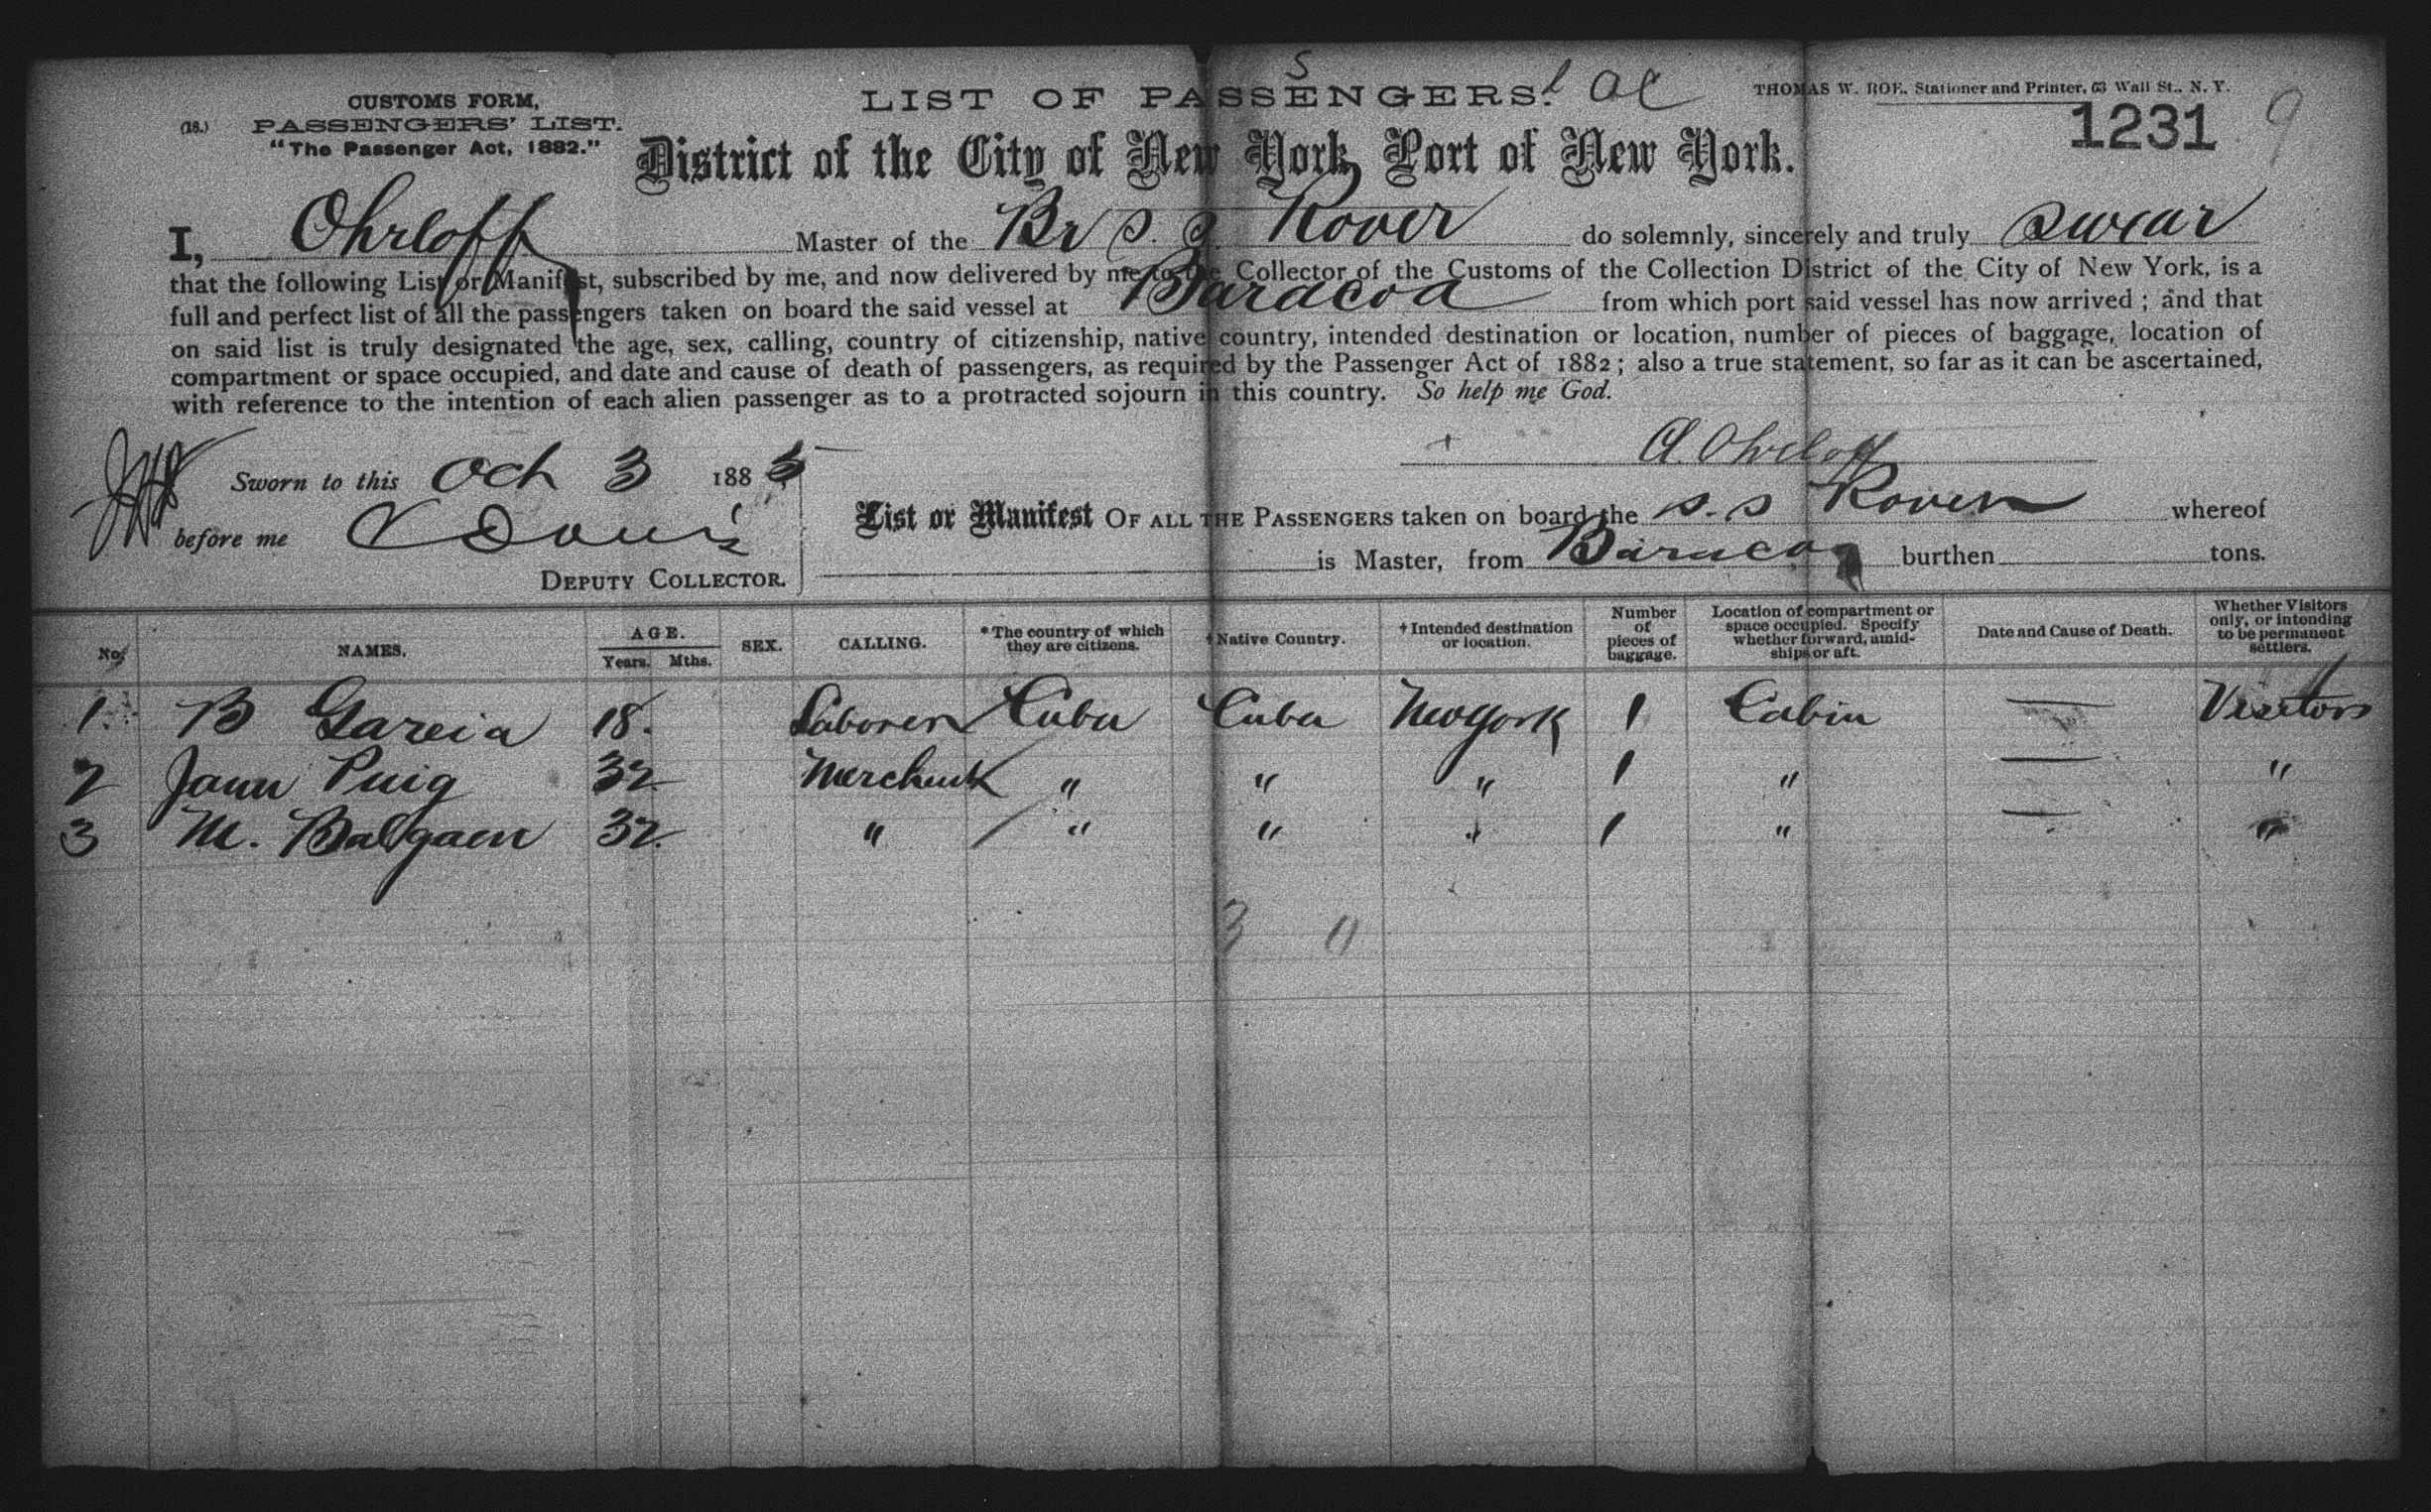 CUSTOMS FORM,
(18.) PASSENGERS' LIST.
"The Passenger Act, 1882."
LIST OF PASSENGERS.
THOMAS W. ROE, Stationer and Printer, 63 Wall St., N. Y.
1231 9
District of the City of New York, Port of New York.
I, Ohrloff Master of the Br S. S. Rover do solemnly, sincerely and truly swear
that the following List or Manifest, subscribed by me, and now delivered by me to the Collector of the Customs of the Collection District of the City of New York, is a
full and perfect list of all the passengers taken on board the said vessel at Baracoa from which port said vessel has now arrived; and that
on said list is truly designated the age, sex, calling, country of citizenship, native country, intended destination or location, number of pieces of baggage, location of
compartment or space occupied, and date and cause of death of passengers, as required by the Passenger Act of 1882; also a true statement, so far as it can be ascertained,
with reference to the intention of each alien passenger as to a protracted sojourn in this country. So help me God.
A. Ohrloff
Sworn to this Oct 3 1885
before me Davis
DEPUTY COLLECTOR.
List or Manifest OF ALL THE PASSENGERS taken on board the S.S Rover whereof
is Master, from Baracoa burthen tons.
No. NAMES. AGE. Years. Mths. SEX. CALLING. *The country of which they are citizens. †Native Country. †Intended destination or location. Number of pieces of baggage. Location of compartment or space occupied. Specify whether forward, amidships or aft. Date and Cause of Death. Whether Visitors only, or intending to be permanent settlers.
1. B Garcia 18. Laborer Cuba Cuba New York 1 Cabin — Visitors
2 Juan Puig 32 Merchant " " " 1 " — "
3 M. 32. " " " " 1 " — "
3 0